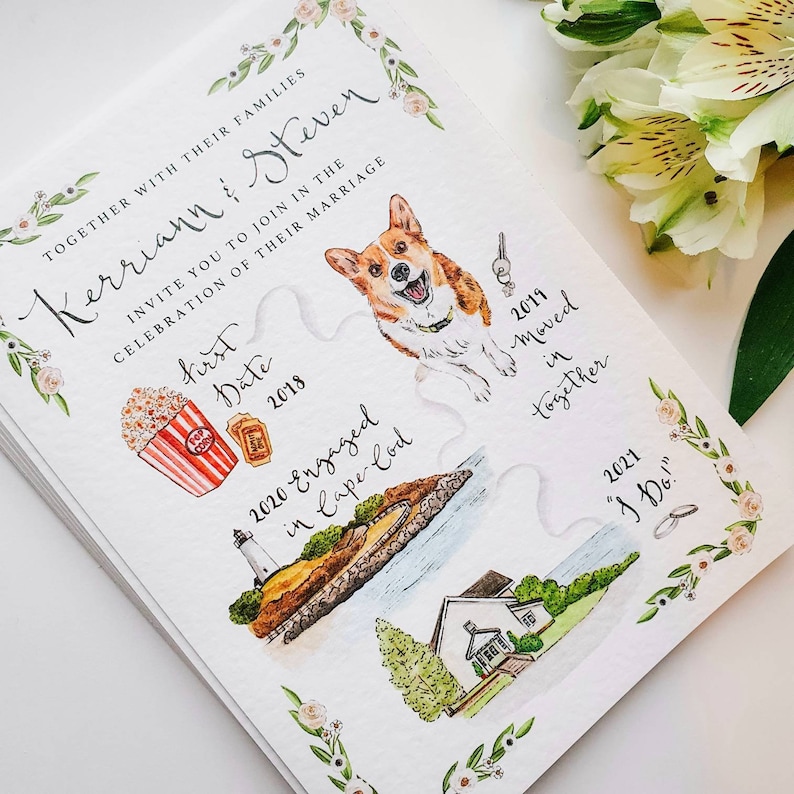 TOGETHER WITH THEIR FAMILIES
Kerriann & Steven
INVITE YOU TO JOIN IN THE
CELEBRATION OF THEIR MARRIAGE
First
Date
2018
POP
CORN
ADMIT
ONE
2019
Moved
in
together
2020 Engaged
in Cape Cod
2021
"I Do!"